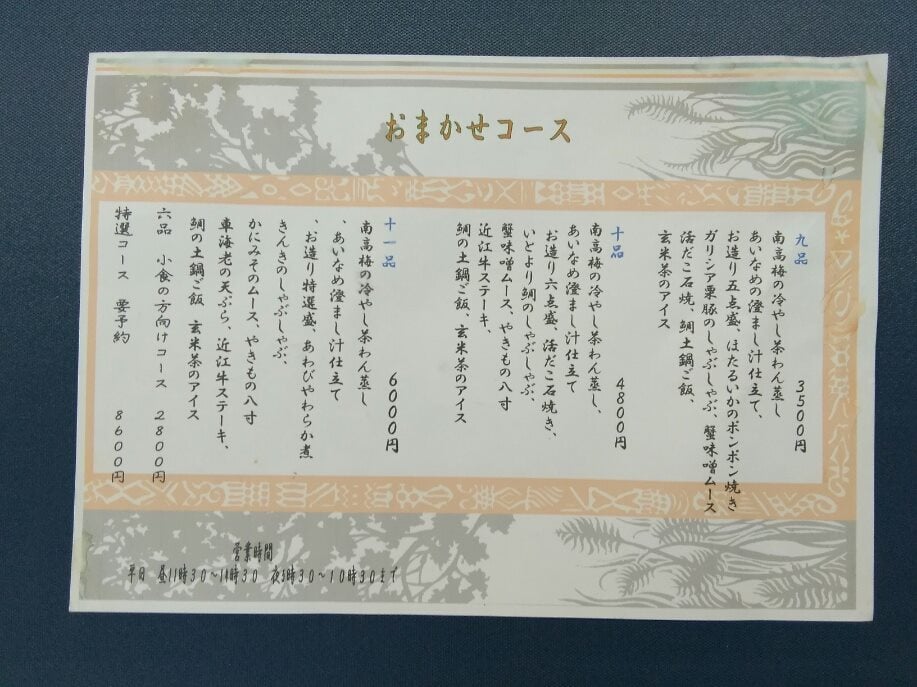 おまかせコース
九品　3500円
南高梅の冷やし茶わん蒸し
あいなめの澄まし汁仕立て、
お造り五点盛、ほたるいかのポンポン焼き
ガリシア栗豚のしゃぶしゃぶ、蟹味噌ムース
活だこ石焼、鯛土鍋ご飯、
玄米茶のアイス
十品　4800円
南高梅の冷やし茶わん蒸し、
あいなめ澄まし汁仕立て
お造り六点盛、活だこ石焼き、
いとより鯛のしゃぶしゃぶ、
蟹味噌ムース、やきもの八寸
近江牛ステーキ、
鯛の土鍋ご飯、玄米茶のアイス
十一品　6000円
南高梅の冷やし茶わん蒸し
、あいなめ澄まし汁仕立て
、お造り特選盛、あわびやわらか煮
きんきのしゃぶしゃぶ、
かにみそのムース、やきもの八寸
車海老の天ぷら、近江牛ステーキ、
鯛の土鍋ご飯　玄米茶のアイス
六品　小食の方向けコース　2800円
特選コース　要予約　8600円
営業時間
平日　昼11時30～14時30　夜5時30～10時30まで